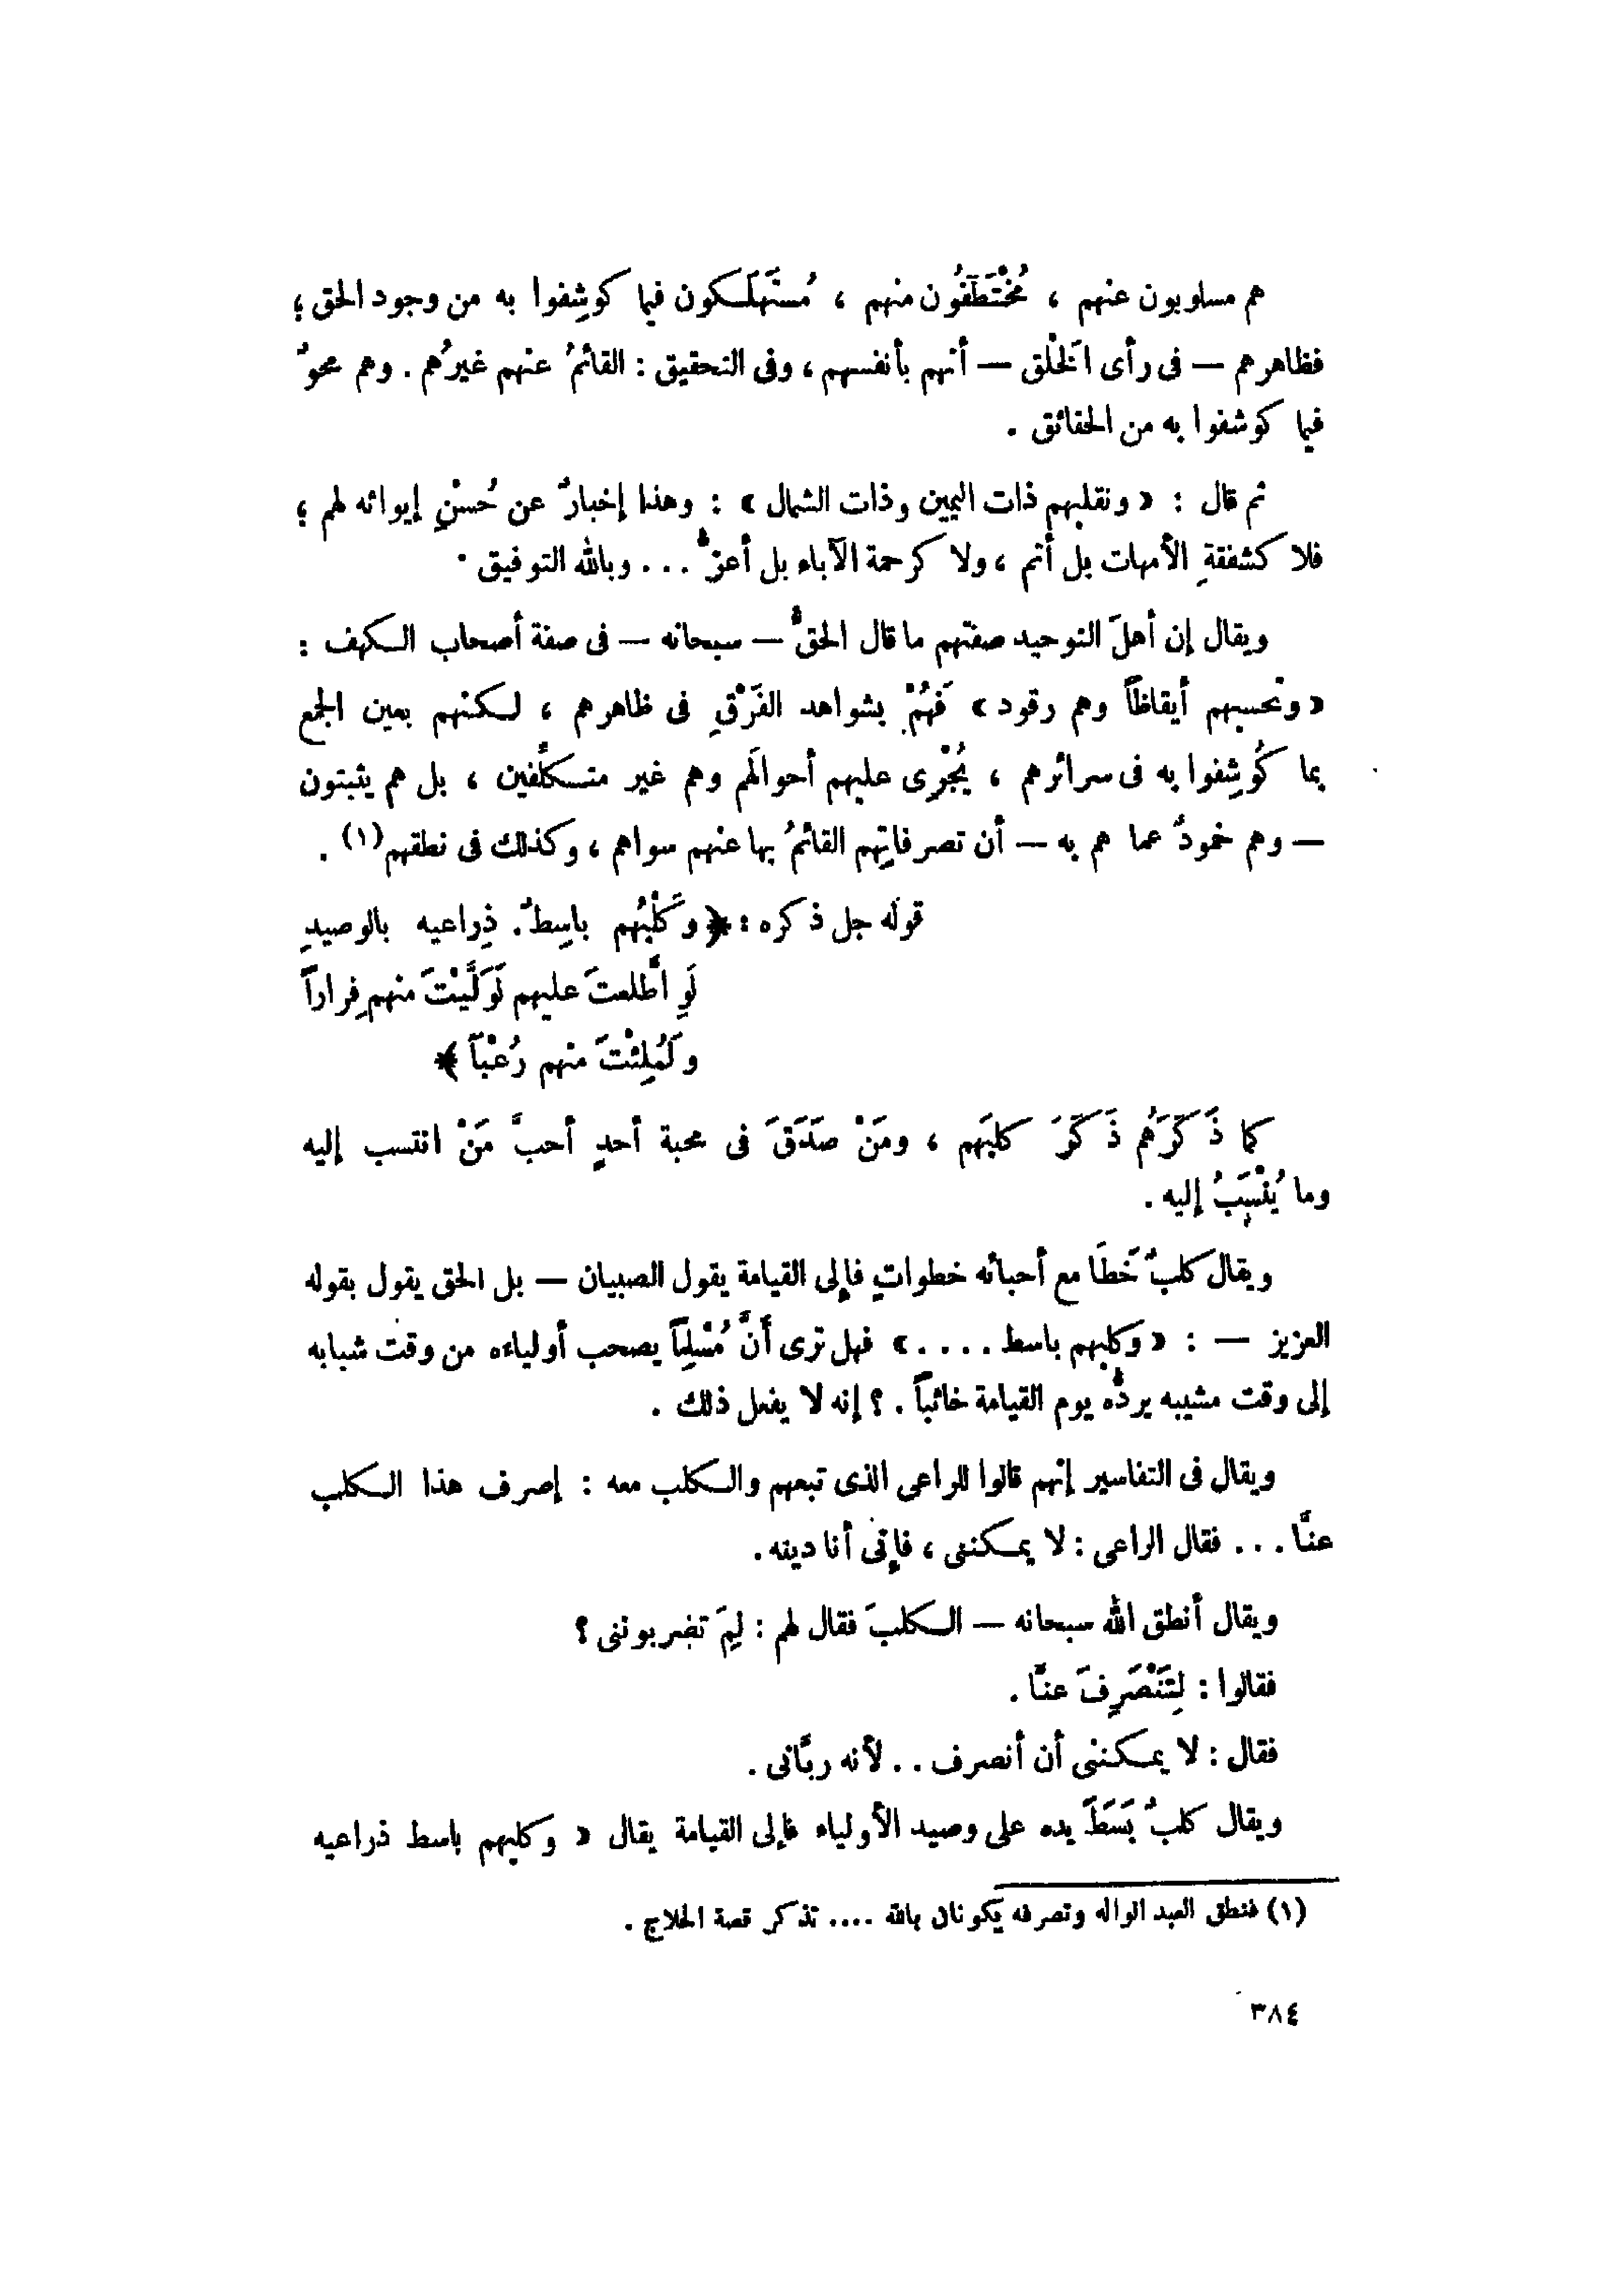 هم مسلوبون عنهم ، مُخْتَطَفُون منهم ، مُسْتَهْلَكون فيما كوشِفوا به من وجود الحق ؛
فظاهرهم — فى رأى الخَلْق — أنهم بأنفسهم ، وفى التحقيق : القائمُ عنهم غيرُهم . وهم محوٌ
فيما كوشفوا به من الحقائق .
ثم قال : « ونقلبهم ذات اليمين وذات الشمال » : وهذا إخبارٌ عن حُسْنِ إيوائه لهم ؛
فلا كشفقةِ الأمهات بل أتم ، ولا كرحمة الآباء بل أعزُّ ... وبالله التوفيق .
ويقال إن أهلَ التوحيد صفتهم ما قال الحقُّ — سبحانه — فى صفة أصحاب الكهف :
« وتحسبهم أيقاظاً وهم رقود » فَهُمْ بشواهد الفَرْقِ فى ظاهرهم ، لكنهم بعين الجمع
بما كُوشِفوا به فى سرائرهم ، يُجْرِى عليهم أحوالَهم وهم غير متكلِّفين ، بل هم يثبتون
— وهم خمودٌ عما هم به — أن تصرفاتِهم القائمُ بها عنهم سواهم ، وكذلك فى نطقهم (١) .
قوله جل ذكره : ﴿ وكَلْبُهم باسِطٌ ذِراعيه بالوصيدِ
لَوِ اطَّلعتَ عليهم لَوَلَّيْتَ منهم فِراراً
ولَمُلِئْتَ منهم رُعْباً ﴾
كما ذَكَرَهُم ذَكَرَ كلبَهم ، ومَنْ صَدَقَ فى محبة أحدٍ أحبَّ مَنْ انتسب إليه
وما يُنْسَبُ إليه .
ويقال كلبٌ خَطَا مع أحبائه خطواتٍ فإلى القيامة يقول الصبيان — بل الحق يقول بقوله
العزيز — : « وكلبهم باسط .... » فهل ترى أنَّ مُسْلِماً يصحب أولياءه من وقت شبابه
إلى وقت مشيبه يردُّه يوم القيامة خائباً . ؟ إنه لا يفعل ذلك .
ويقال فى التفاسير إنهم قالوا للراعى الذى تبعهم والكلب معه : إصرف هذا الكلب
عنَّا ... فقال الراعى : لا يمكننى ، فإنّى أنا دينه .
ويقال أنطق الله سبحانه — الكلبَ فقال لهم : لِمَ تضربوننى ؟
فقالوا : لِتَنْصَرِفَ عنَّا .
فقال : لا يمكننى أن أنصرف .. لأنه ربَّانى .
ويقال كلبٌ بَسَطَ يده على وصيد الأولياء فإلى القيامة يقال « وكلبهم باسط ذراعيه
(١) فنطق العبد الواله وتصرفه يكونان بالله .... تذكر قصة الحلاج .
٣٨٤